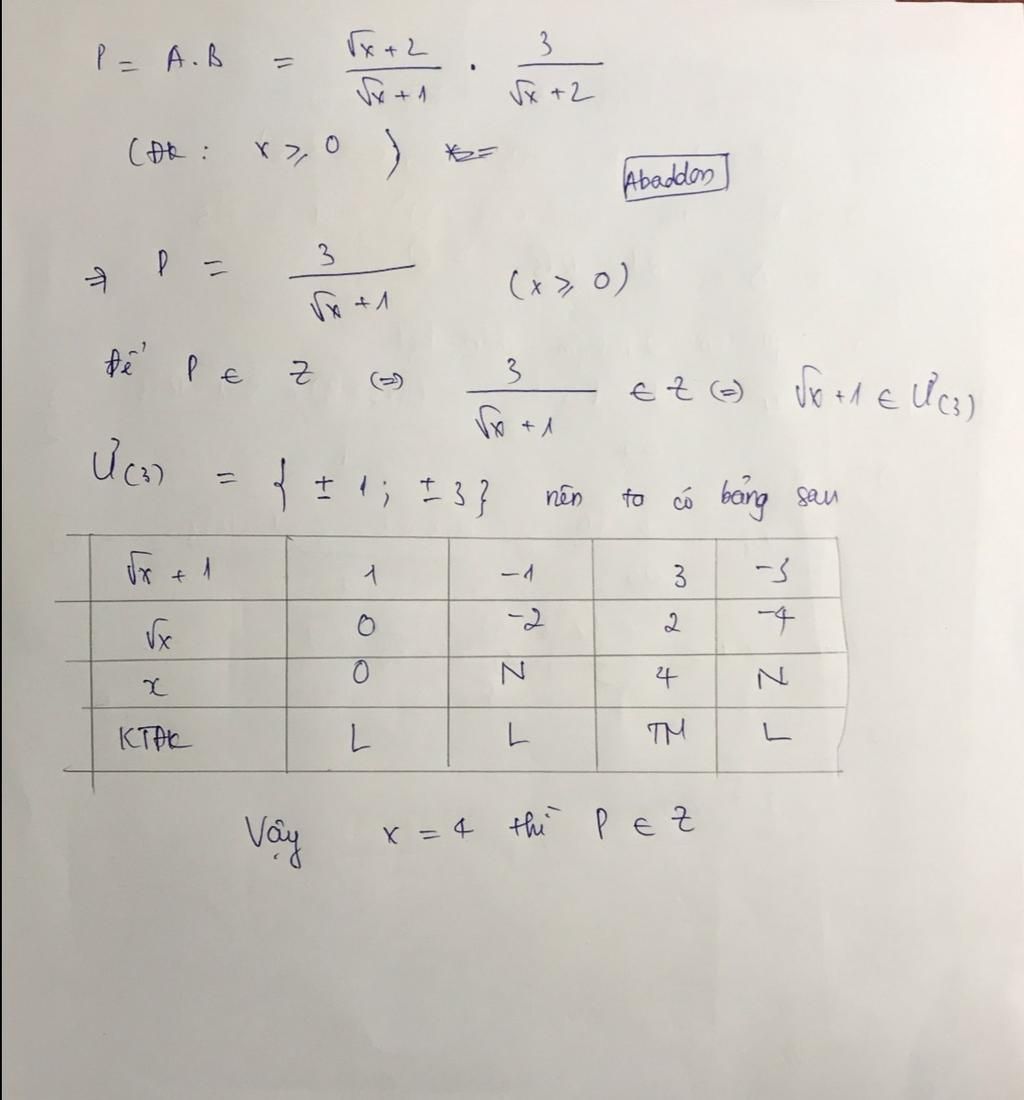 P = A.B = (√x + 2)/(√x + 1) . 3/(√x + 2)
(ĐK: x ⩾ 0)
Abaddon
⇒ P = 3/(√x + 1) (x ⩾ 0)
Để P ∈ Z (=) 3/(√x + 1) ∈ Z (=) √x + 1 ∈ Ư(3)
Ư(3) = { ± 1; ± 3 } nên ta có bảng sau
√x + 1 1 -1 3 -3
√x 0 -2 2 -4
x 0 N 4 N
KTĐK L L TM L
Vậy x = 4 thì P ∈ Z